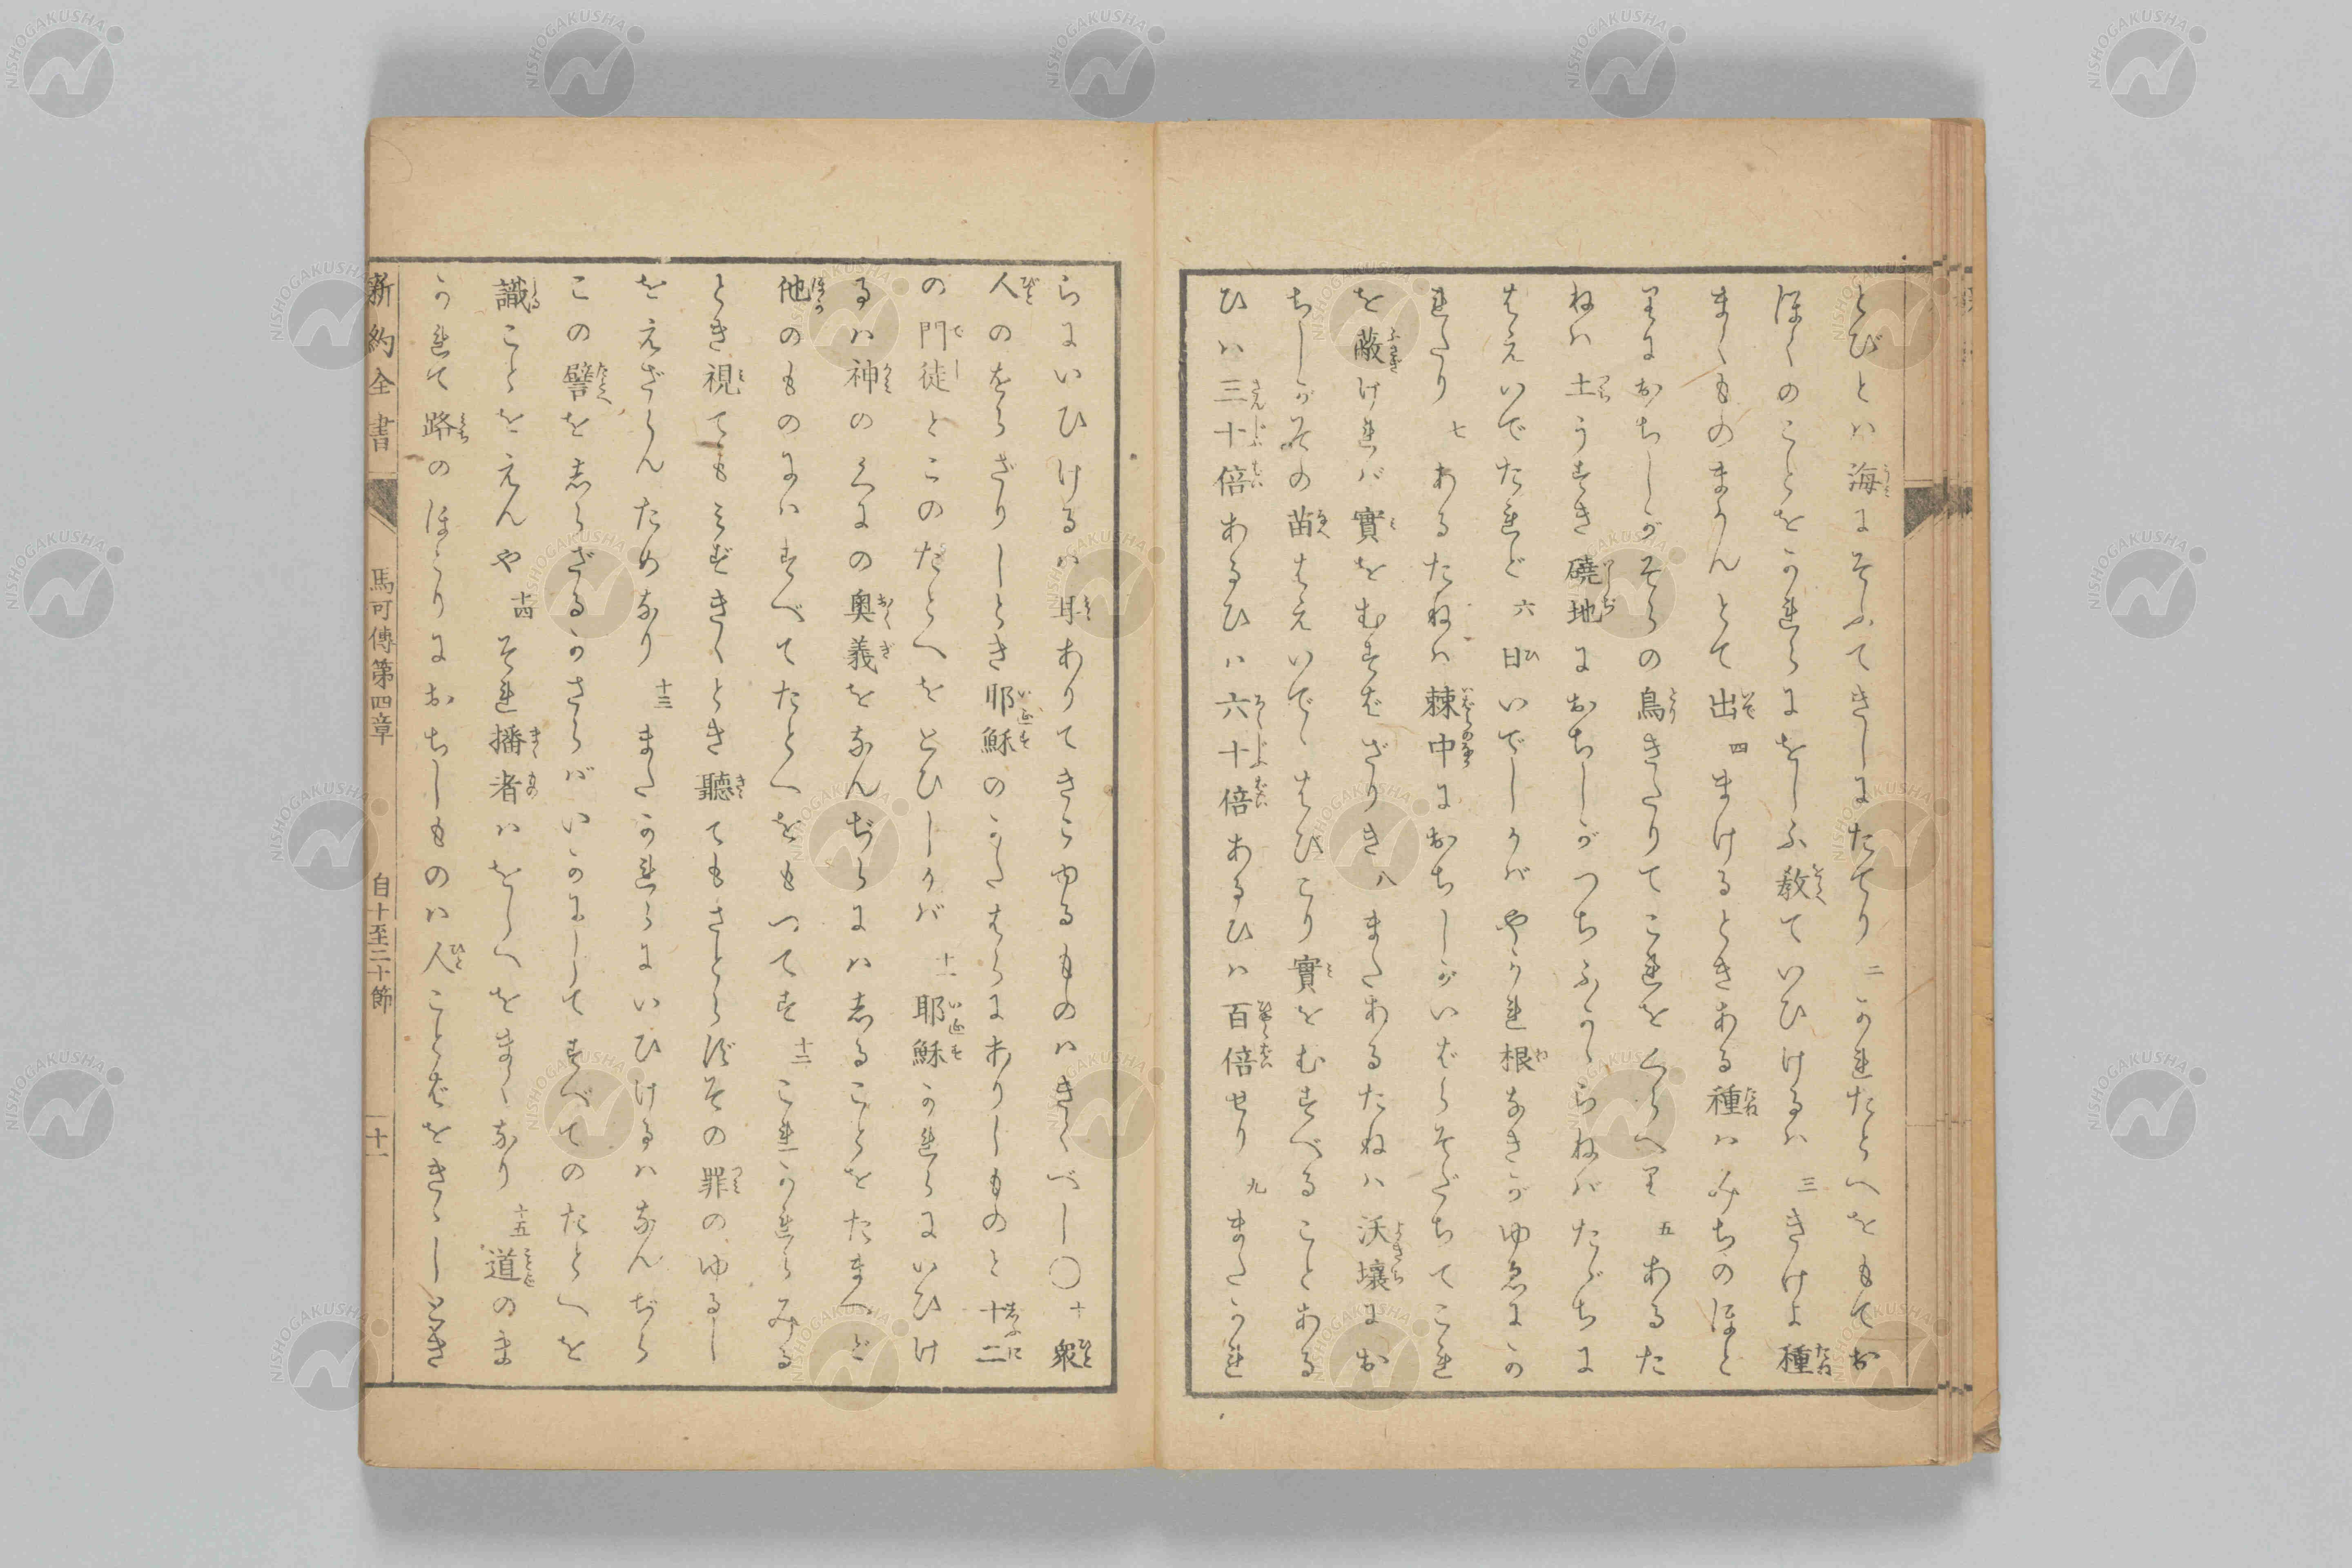 とびとハ海にそふてきしにたてり 二 かれたとへをもてお
ほくのことをかれらにをしふ教ていひけるハ 三 きけよ種
まくものまかんとて出 四 まけるときある種ハみちのほと
りにおちしがそらの鳥きたりてこれをくらへり 五 あるた
ねハ土うすき磽地におちしがつちふかゝらねバたゞちに
はえいでたれど 六 日いでしかバやかれ根なきがゆゑにか
れたり 七 あるたねハ棘中におちしがいばらそだちてこれ
を蔽けれバ實をむすばざりき 八 またあるたねハ沃壤にお
ちしがその苗はえいでゝはびこり實をむすべることある
ひハ三十倍あるひハ六十倍あるひハ百倍せり 九 またかれ
らにいひけるハ耳ありてきこゆるものハきくべし〇 十 衆
人のをらざりしとき耶穌のかたはらにありしものと十二
の門徒とこのたとへをとひしかバ 十一 耶穌かれらにいひけ
るハ神のくにの奥義をなんぢらにハしることをたまへど
他のものにハすべてたとへをもつてす 十二 これかれらみる
とき視てもみずきくとき聽てもさとらずその罪のゆるし
をえざらんためなり 十三 またかれらにいひけるハなんぢら
この譬をしらざるかさらバいかにしてすべてのたとへを
識ことをえんや 十四 それ播者ハをしへをまくなり 十五 道のま
かれて路のほとりにおちしものハ人ことばをきゝしとき
新約全書 馬可傳第四章 自十至二十節 十一